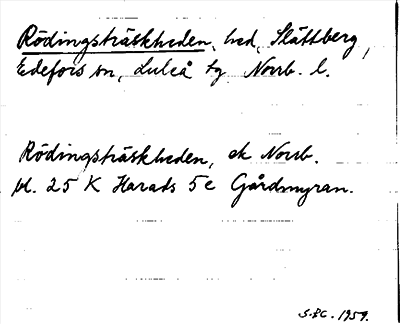 Rödingsträskheden, hed, Slättberg,
Edefors sn, Luleå tg Norrb. l.
Rödingsträskheden, ek Norrb.
bl. 25 K Harads 5c Gårdmyran.
1959.